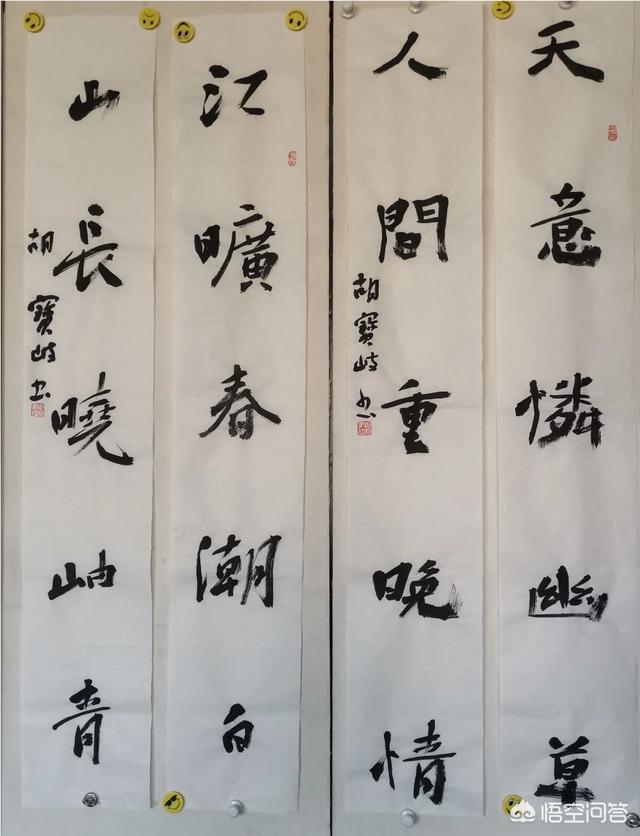 天意憐幽草
人間重晚情
胡寶岐书
江曠春潮白
山長曉岫青
胡寶岐书
悟空问答